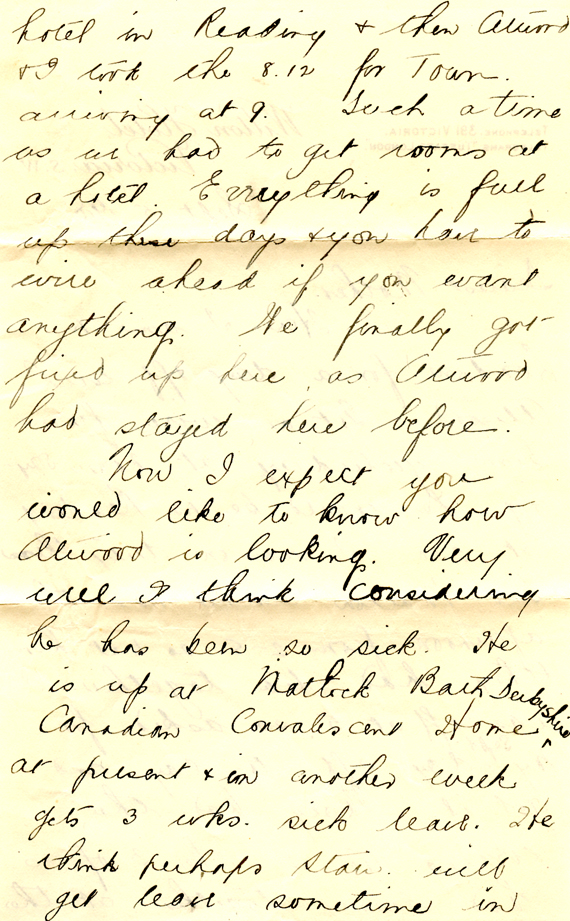 hotel in Reading & then Atwood
& I took the 8.12 for Town.
arriving at 9. Such a time
as we had to get rooms at
a hotel. Everything is full
up these days & you have to
wire ahead if you want
anything. We finally got
fixed up here as Atwood
had stayed here before.
Now I expect you
would like to know how
Atwood is looking. Very
well I think considering
he has been so sick. He
is up at Matlock Bath Derbyshire
Canadian Convalescent Home
at present & in another week
gets 3 wks. sick leave. We
think perhaps Stan. will
get leave sometime in